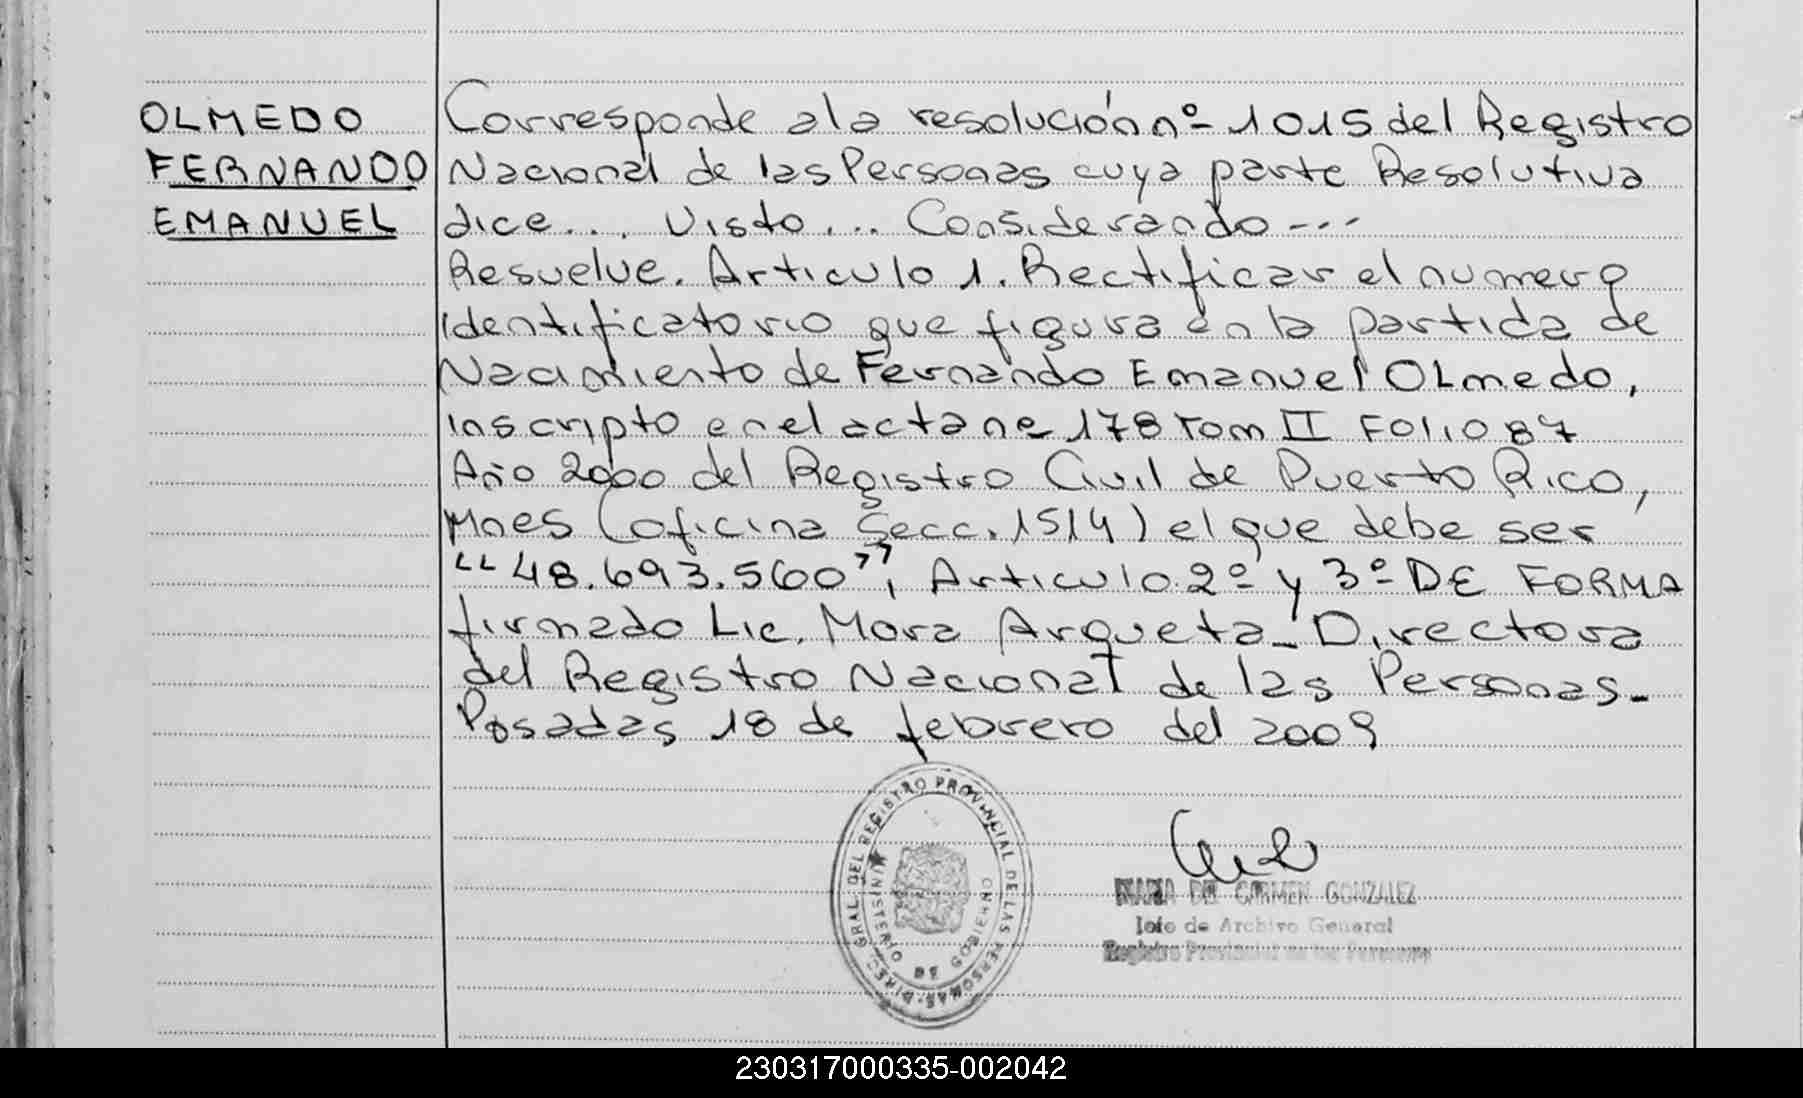 OLMEDO
FERNANDO
EMANUEL
Corresponde a la resolución nº 1015 del Registro
Nacional de las Personas cuya parte Resolutiva
dice... Visto... Considerando ---
Resuelve. Articulo 1. Rectificar el numero
identificatorio que figura en la partida de
Nacimiento de Fernando Emanuel Olmedo,
inscripto en el acta nº 178 Tom II Folio 87
Año 2000 del Registro Civil de Puerto Rico,
Mnes (oficina Secc. 1514) el que debe ser
"48.693.560", Articulo 2º y 3º DE FORMA
firmado Lic. Mora Arqueta_ Directora
del Registro Nacional de las Personas-
Posadas 18 de febrero del 2009
DIREC. GRAL. DEL REGISTRO PROVINCIAL DE LAS PERSONAS
MINISTERIO DE GOBIERNO
MARIA DEL CARMEN GONZALEZ
Jefe de Archivo General
Registro Provincial de las Personas
230317000335-002042